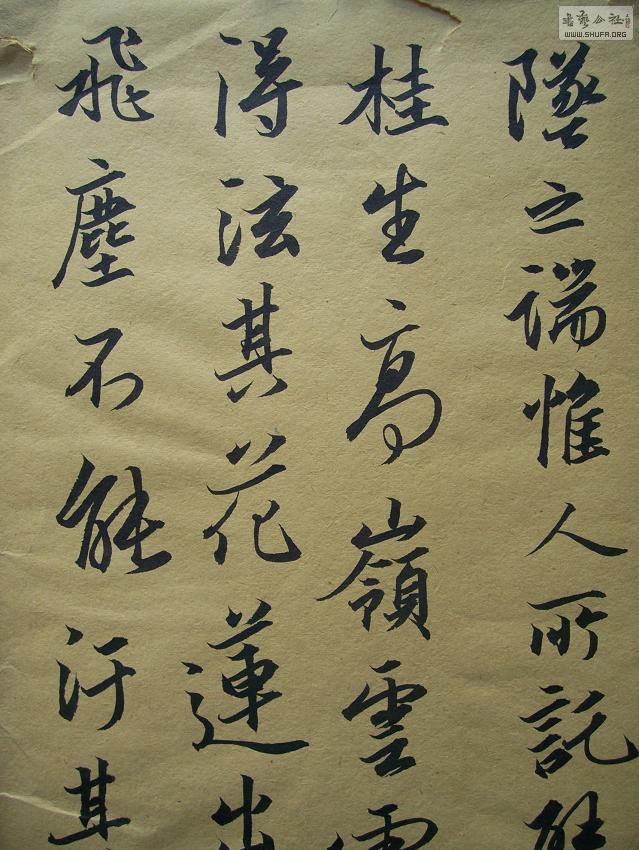 墜之端惟人所託譬
桂生高嶺雲露
得泫其花蓮出
飛塵不能汙其
書藝公社
WWW.SHUFA.ORG